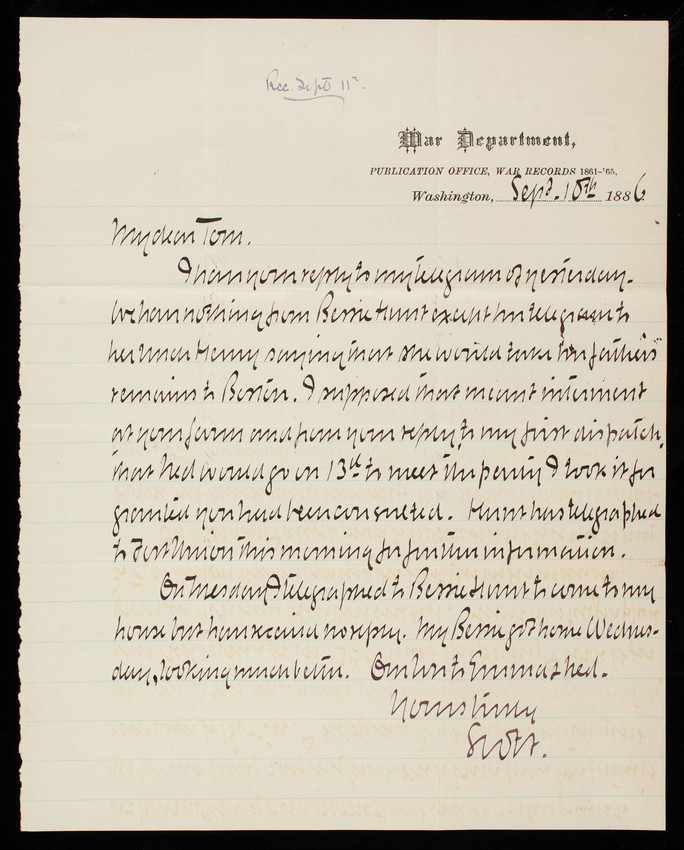 Rec. Sept 11th.
War Department,
PUBLICATION OFFICE, WAR RECORDS 1861-'65,
Washington, Sept. 10th 1886
My dear Tom.
I have your reply to my telegram of yesterday.
We have nothing from Bessie Hunt except her telegram to
her Uncle Henry saying that she would take her father's
remains to Boston. I supposed that meant interment
at your farm and from your reply to my first dispatch,
that Ned would go on 13th to meet the party I took it for
granted you had been consulted. Hunt has telegraphed
to Fort Union this morning for further information.
On Tuesday I telegraphed to Bessie Hunt to come to my
house but have received no reply. My Bessie got home Wednes-
day, looking much better. Our love to Emma & Ned.
Yours truly
Scott.